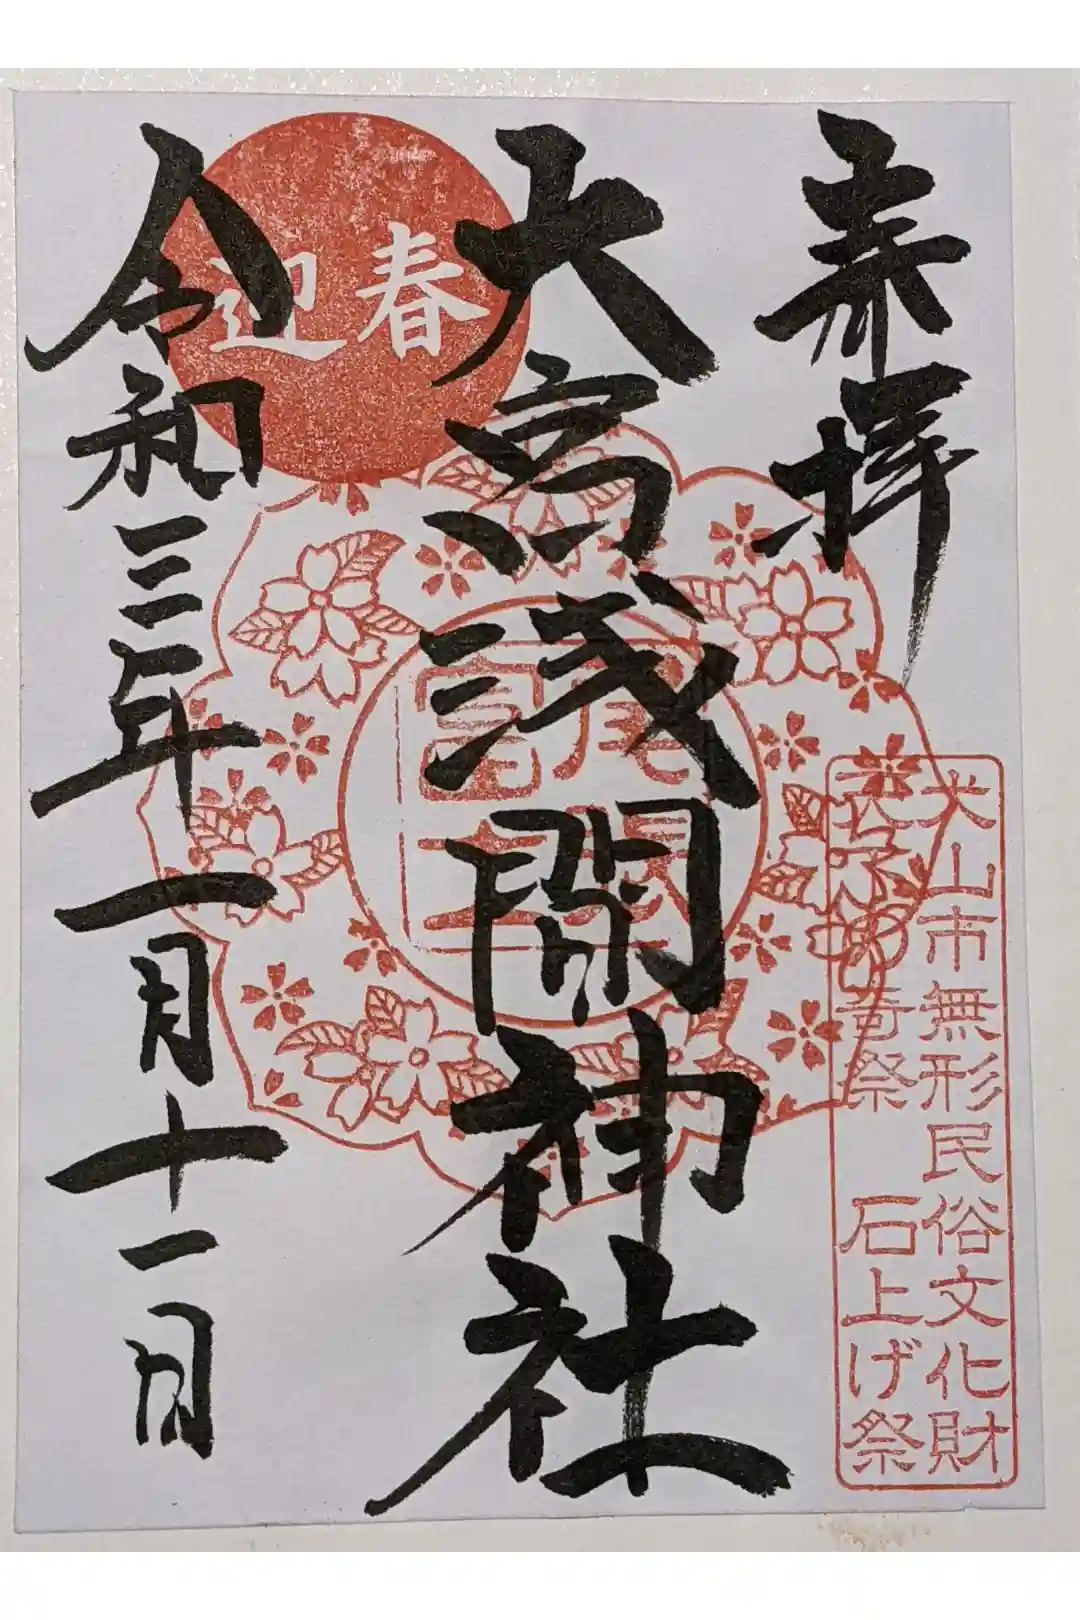 奉拝
犬山市無形民俗文化財
天下の奇祭 石上げ祭
大宮浅間神社
尾張
冨士
迎春
令和三年一月十一日